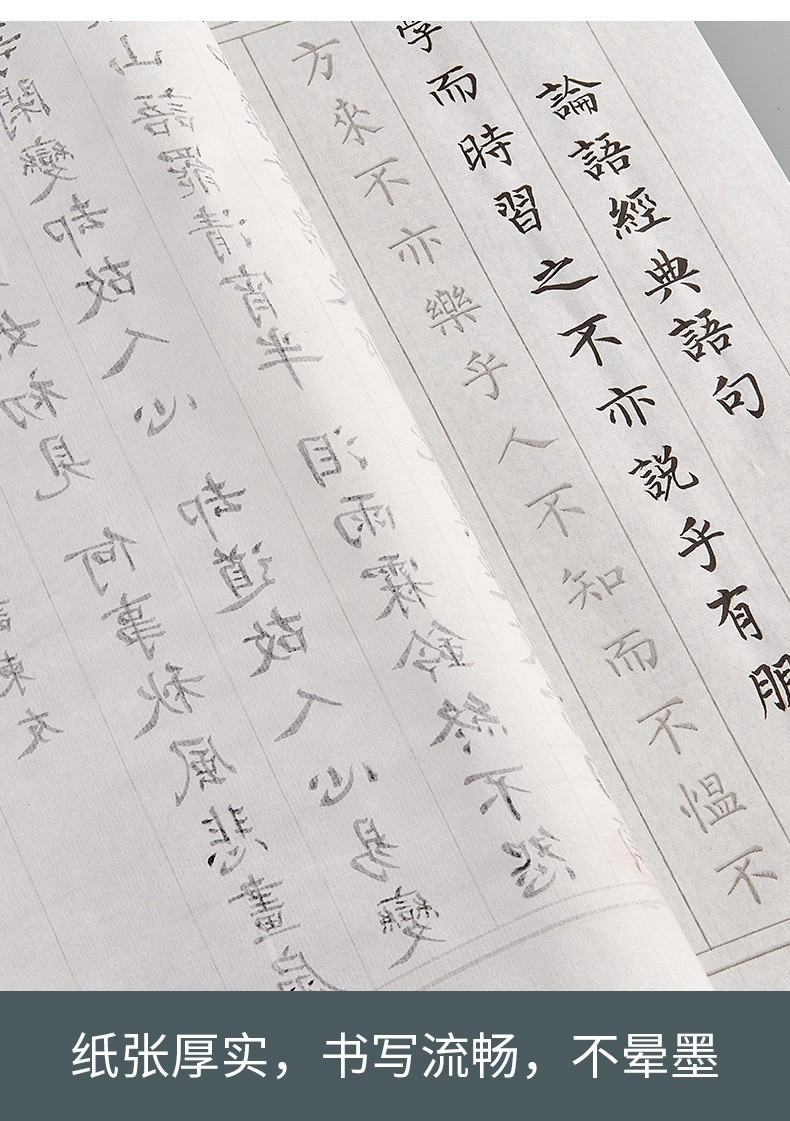 論語經典語句
學而時習之不亦説乎有朋
方來不亦樂乎人不知而不愠不
柬友
如初見 何事秋風悲畫扇
等閑變却故人心 却道故人心易變
山語罷清宵半 泪雨霖鈴終不怨
纸张厚实，书写流畅，不晕墨